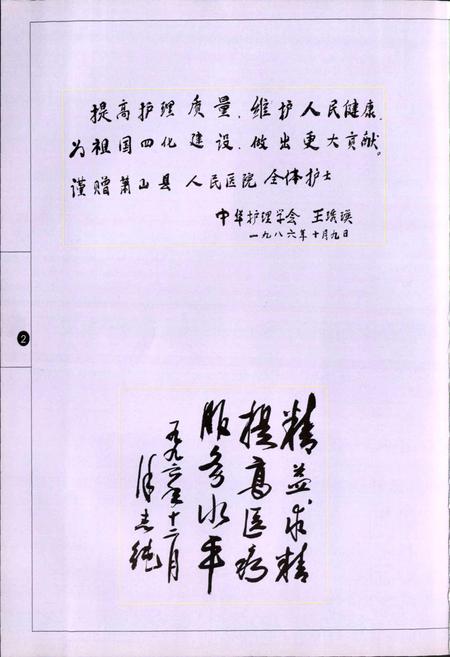 提高护理质量,维护人民健康,
为祖国四化建设,做出更大贡献。
谨赠萧山县人民医院全体护士
中华护理学会 王琇瑛
一九八六年十月九日
2
精益求精
提高医疗
服务水平
一九九六年十二月
志纯